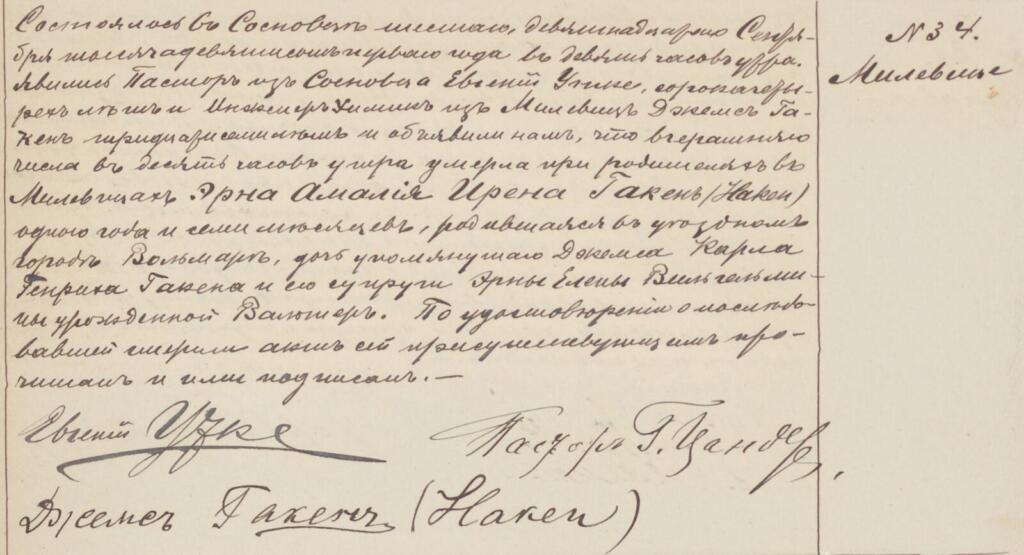 Состоялось въ Сосновцѣ шестаго, девятнадцатаго Сентя-
бря тысяча девятисотъ перваго года въ девять часовъ утра.
Явились Пасторъ изъ Сосновца Евгеній Утке, сорокачеты-
рехъ лѣтъ и Инженеръ Химикъ изъ Милевицъ Джемсъ Га-
кенъ тридцати семи лѣтъ и объявили намъ, что вчерашняго
числа въ десять часовъ утра умерла при родителяхъ въ
Милевицахъ Эрна Амалія Ирена Гакенъ (Haken)
одного года и семи мѣсяцевъ, родившаяся въ уѣздномъ
городѣ Вольмарѣ, дочь упомянутаго Джемса Карла
Генриха Гакена и его супруги Эрны Елены Вильгельми-
ны урожденной Вальтеръ. По удостовѣреніи о послѣдо-
вавшей смерти актъ сей присутствующимъ про-
читанъ и ими подписанъ.—
Евгеній Утке
Пасторъ Г. Цандеръ
Джемсъ Гакенъ (Haken)
№ 34.
Милевице